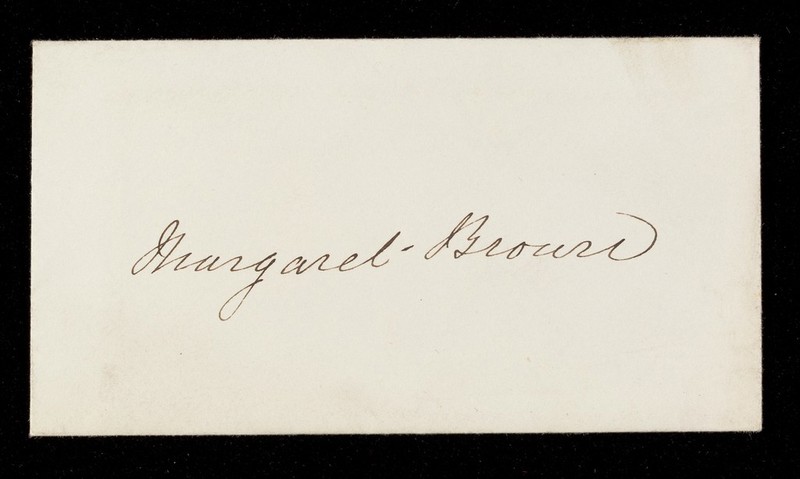 Margaret Brown